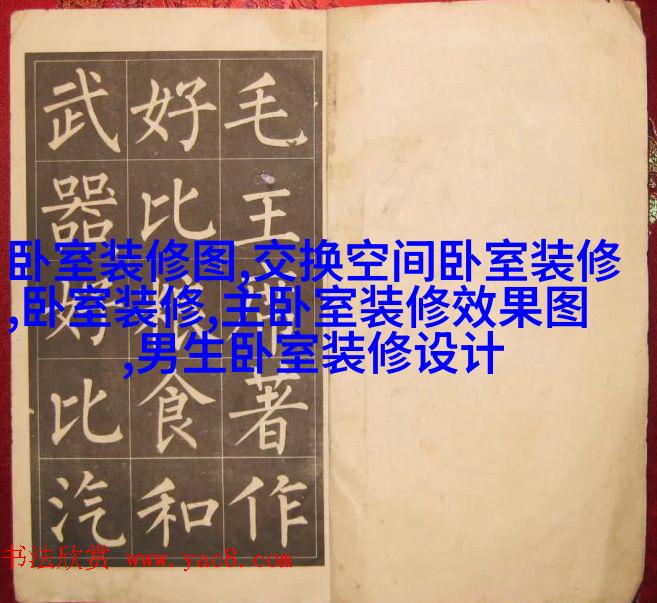 毛主著作
好比食和
武器好比汽
卧室装修图,交换空间卧室装修
,卧室装修,主卧室装修效果图
,男生卧室装修设计
书法欣赏 www.yac8.com